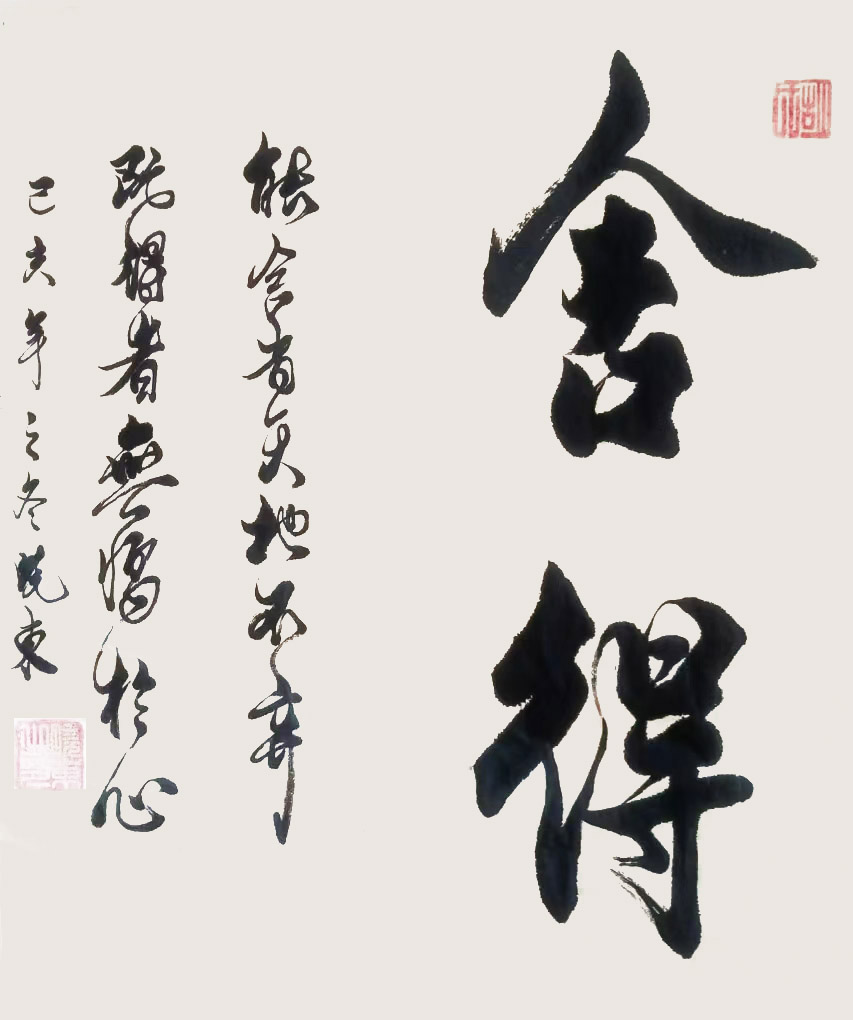 舍得
能舍者天地不弃
既得者無愧於心
己亥年之冬晓東